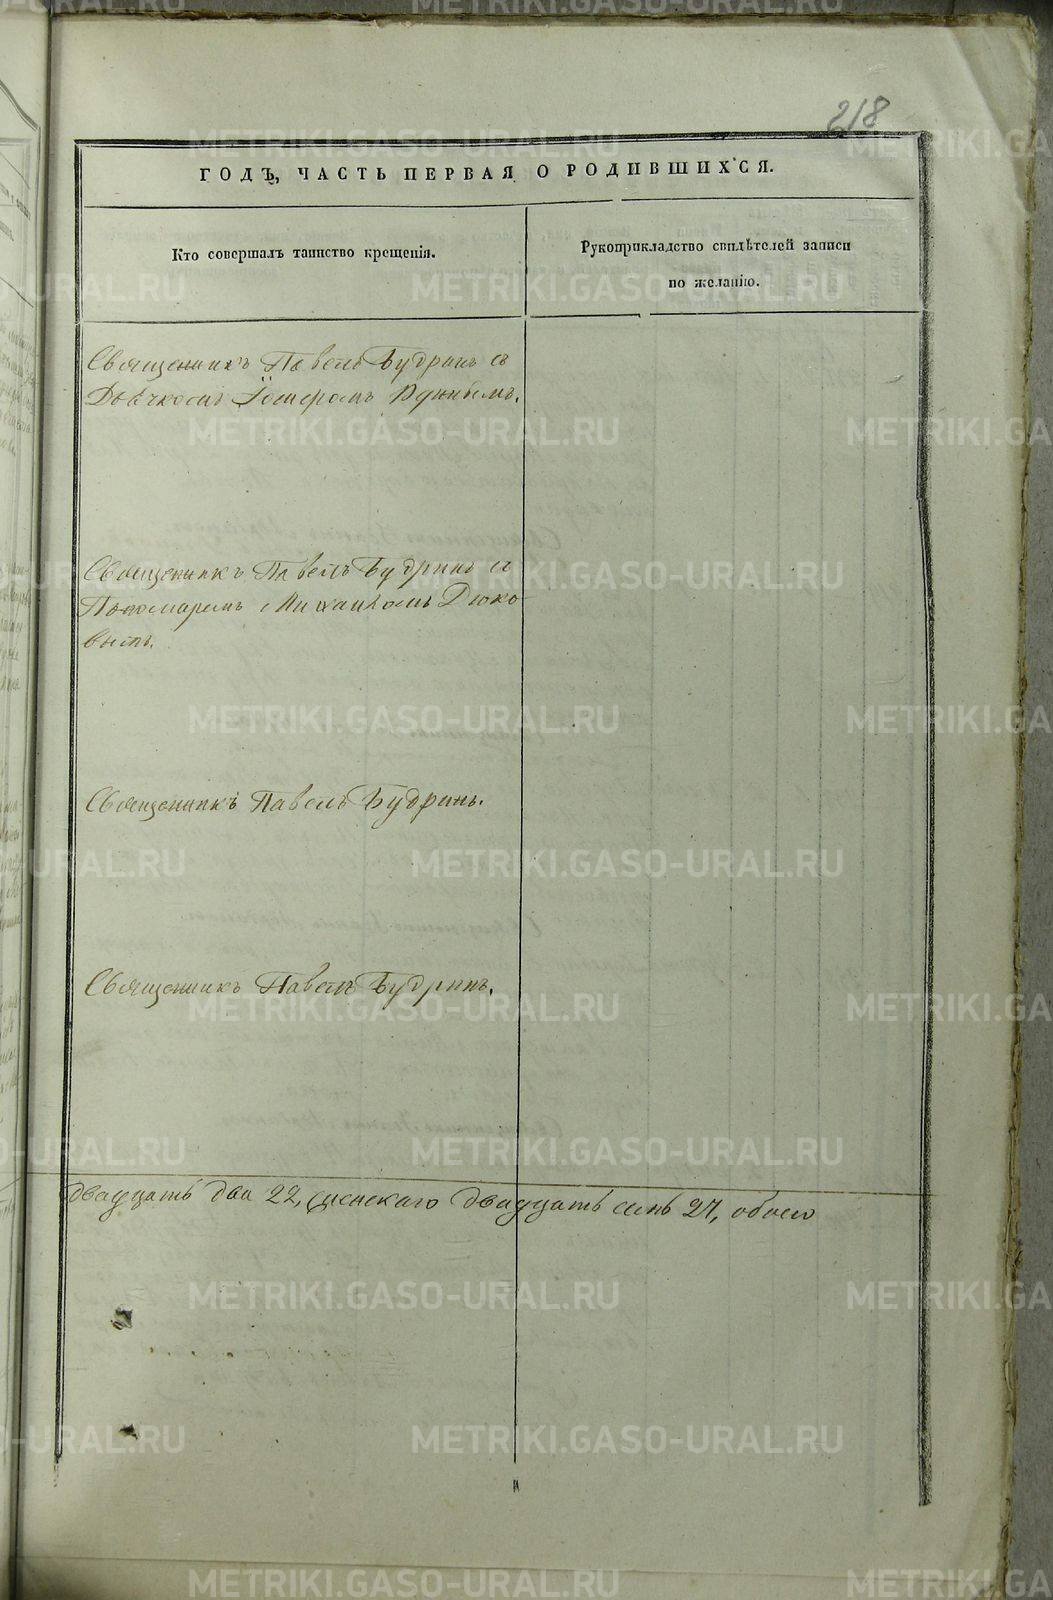 218
ГОДЪ, ЧАСТЬ ПЕРВАЯ О РОДИВШИХСЯ.
Кто совершалъ таинство крещенія.
Рукоприкладство свидѣтелей записи
по желанію.
Священникъ Павелъ Будринъ съ
Дьячкомъ
Священникъ Павелъ Будринъ съ
Пономаремъ Михаиломъ Дюко
вымъ.
Священникъ Павелъ Будринъ.
Священникъ Павелъ Будринъ.
двадцать два 22, женскаго двадцать семь 27, обоего
METRIKI.GASO-URAL.RU